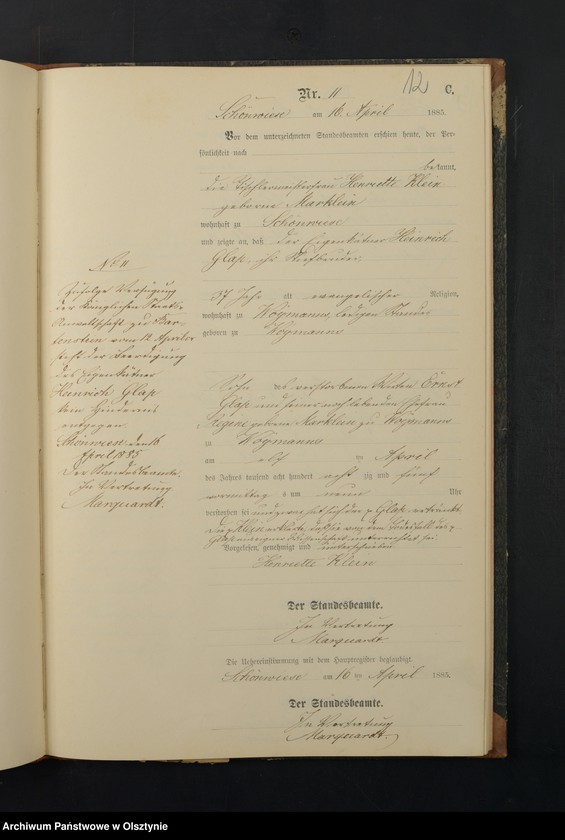 12
Nr. 11 C.
Schönwiese am 16. April 1885.
Vor dem unterzeichneten Standesbeamten erschien heute, der Per-
sönlichkeit nach
bekannt,
die Tischlermeisterfrau Henriette Klein
geborne Marklein
wohnhaft zu Schönwiese
und zeigte an, daß der Eigenkätner Heinrich
Glap, ihr
37 Jahr alt evangelischer Religion,
wohnhaft zu Wögmanns, ledigen Standes
geboren zu Wögmanns
Sohn des verstorbenen Ernst
Glap und seiner noch lebenden Ehefrau
Regine geborne Marklein zu Wögmanns
zu Wögmanns
am elf ten April
des Jahres tausend acht hundert acht zig und fünf
vormittag s um neun Uhr
verstorben sei und zwar hat sich der p Glap
Die p Klein erklärte, daß sie von dem Todesfall des p
Glap aus eigener Wissenschaft unterrichtet sei
Vorgelesen, genehmigt und unterschrieben
Henriette Klein
Der Standesbeamte.
In Vertretung
Marquardt
Die Uebereinstimmung mit dem Hauptregister beglaubigt.
Schönwiese am 16 ten April 1885.
Der Standesbeamte.
In Vertretung
Marquardt
No 11
Zufolge Verfügung
der Königlichen Staats-
Anwaltschaft zu Bar-
tenstein vom 12. April cr
steht der Beerdigung
des Eigenkätner
Heinrich Glap
kein Hindernis
entgegen
Schönwiese den 16
April 1885
Der Standesbeamte.
In Vertretung
Marquardt.
Archiwum Państwowe w Olsztynie